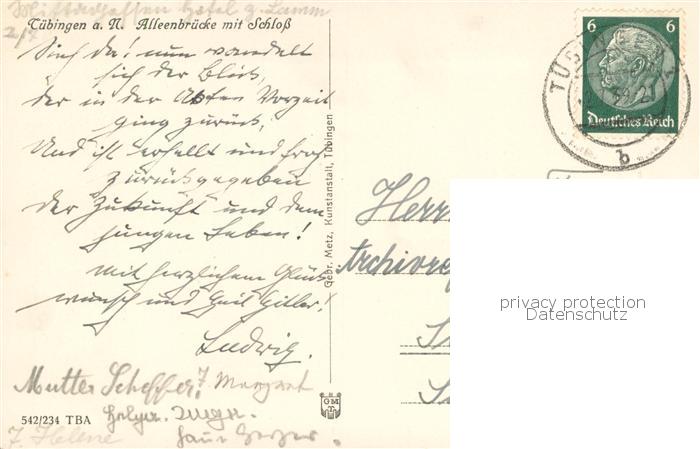 Mittagessen Hotel z. Lamm
Tübingen a. N. Alleenbrücke mit Schloß
Sieh da! nun wandelt
sich der Blick,
der in der alten Vorzeit
ging zurück,
Und ist erhellt und froh
zurückgegeben
der Zukunft und dem
jungen Leben!
Mit herzlichem Glück-
wunsch und Heil Hitler.
Ludwig.
Mutter Scheffer, F. Margaret
Holger.
F. Helene
542/234 TBA
Gebr. Metz, Kunstanstalt, Tübingen
GMT
6 6
Deutsches Reich
TÜBINGEN
b
Herrn
Archivre
privacy protection
Datenschutz